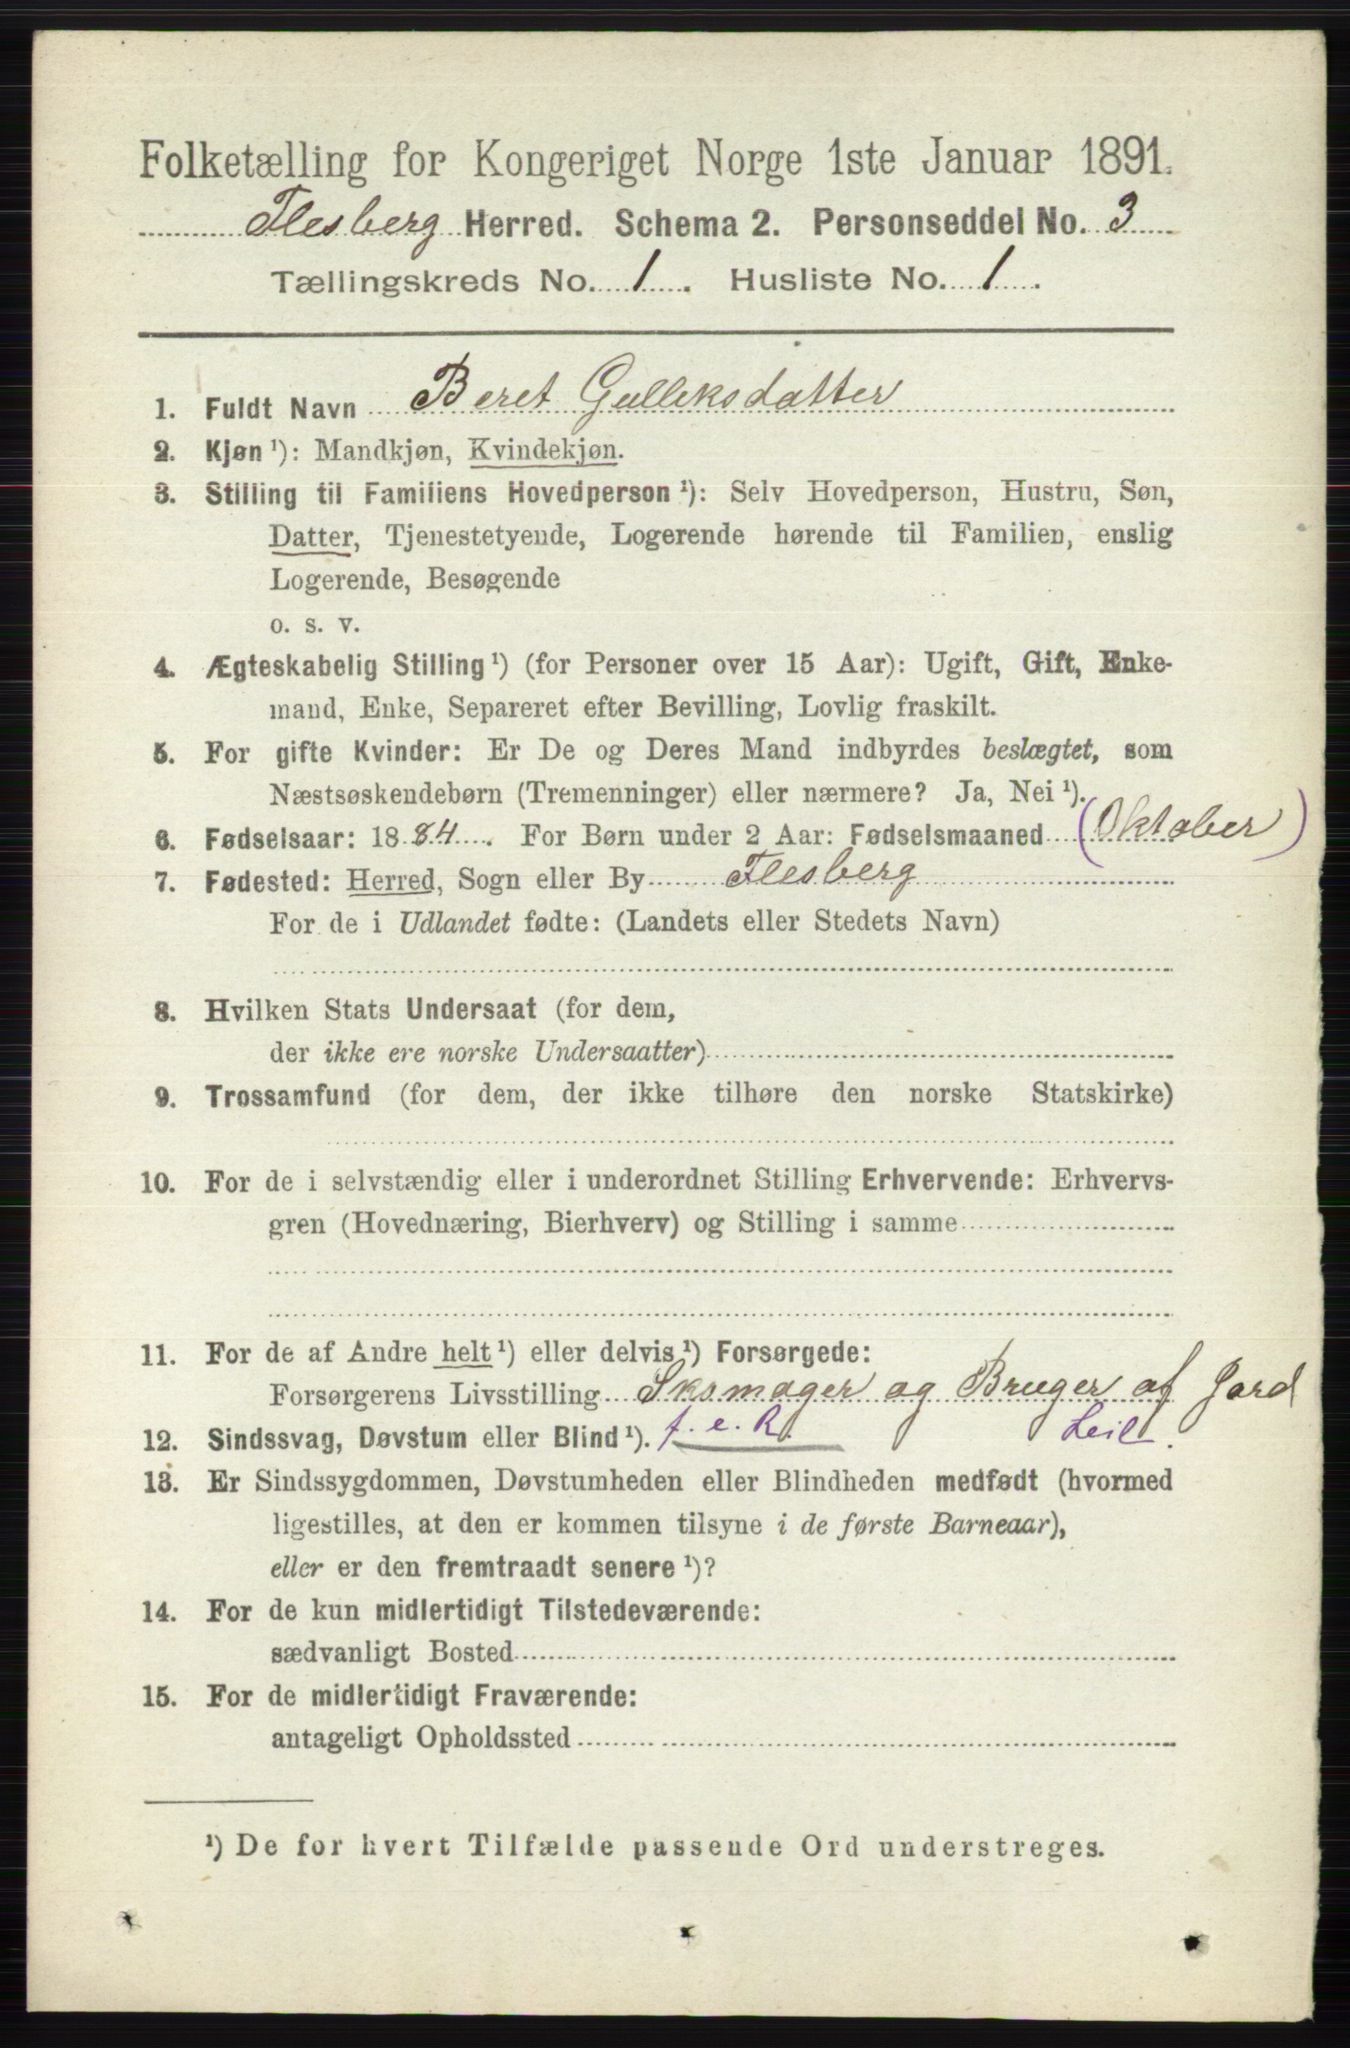 Folketælling for Kongeriget Norge 1ste Januar 1891.
Flesberg Herred. Schema 2. Personseddel No. 3
Tællingskreds No. 1. Husliste No. 1.
1. Fuldt Navn Beret Gulleksdatter
2. Kjøn ¹): Mandkjøn, Kvindekjøn.
3. Stilling til Familiens Hovedperson ¹): Selv Hovedperson, Hustru, Søn,
Datter, Tjenestetyende, Logerende hørende til Familien, enslig
Logerende, Besøgende
o. s. v.
4. Ægteskabelig Stilling ¹) (for Personer over 15 Aar): Ugift, Gift, Enke-
mand, Enke, Separeret efter Bevilling, Lovlig fraskilt.
5. For gifte Kvinder: Er De og Deres Mand indbyrdes beslægtet, som
Næstsøskendebørn (Tremenninger) eller nærmere? Ja, Nei ¹).
6. Fødselsaar: 1884. For Børn under 2 Aar: Fødselsmaaned (Oktober)
7. Fødested: Herred, Sogn eller By Flesberg
For de i Udlandet fødte: (Landets eller Stedets Navn)
8. Hvilken Stats Undersaat (for dem,
der ikke ere norske Undersaatter)
9. Trossamfund (for dem, der ikke tilhøre den norske Statskirke)
10. For de i selvstændig eller i underordnet Stilling Erhvervende: Erhvervs-
gren (Hovednæring, Bierhverv) og Stilling i samme
11. For de af Andre helt ¹) eller delvis ¹) Forsørgede:
Forsørgerens Livsstilling Skomager og Bruger af Jord
12. Sindssvag, Døvstum eller Blind ¹). f. e. R. Leil.
13. Er Sindssygdommen, Døvstumheden eller Blindheden medfødt (hvormed
ligestilles, at den er kommen tilsyne i de første Barneaar),
eller er den fremtraadt senere ¹)?
14. For de kun midlertidigt Tilstedeværende:
sædvanligt Bosted
15. For de midlertidigt Fraværende:
antageligt Opholdssted
¹) De for hvert Tilfælde passende Ord understreges.